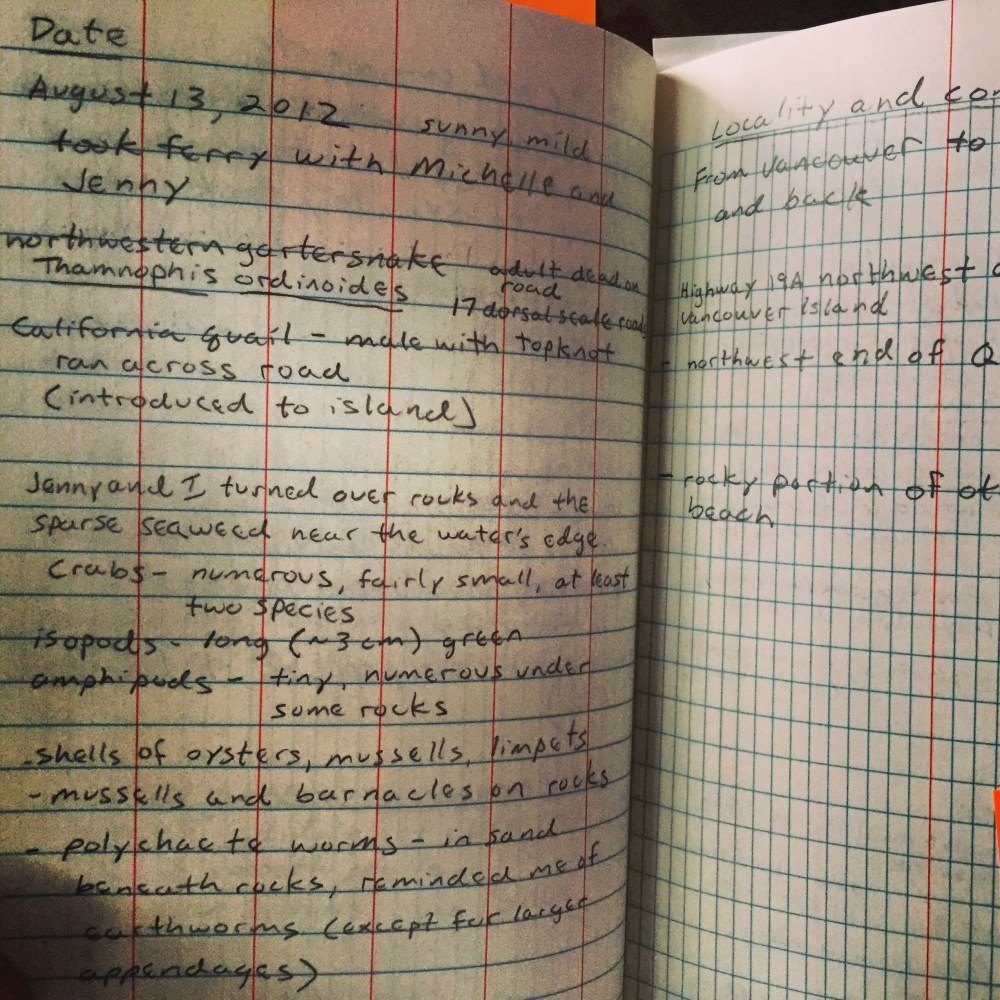 Date
August 13, 2012 sunny mild
took ferry with Michelle and
Jenny
northwestern gartersnake adult dead on
road
Thamnophis ordinoides 17 dorsal scale rows
California quail - male with topknot
ran across road
(introduced to island)
Jenny and I turned over rocks and the
sparse seaweed near the water's edge.
Crabs - numerous, fairly small, at least
two species
isopods - long (~3 cm) green
amphipods - tiny, numerous under
some rocks
- shells of oysters, mussells, limpets
- mussells and barnacles on rocks
- polychaete worms - in sand
beneath rocks, reminded me of
earthworms (except for larger
appendages)
Locality and con
From Vancouver to
and back
Highway 19A northwest
Vancouver Island
- northwest end of Q
- rocky portion of ot
beach